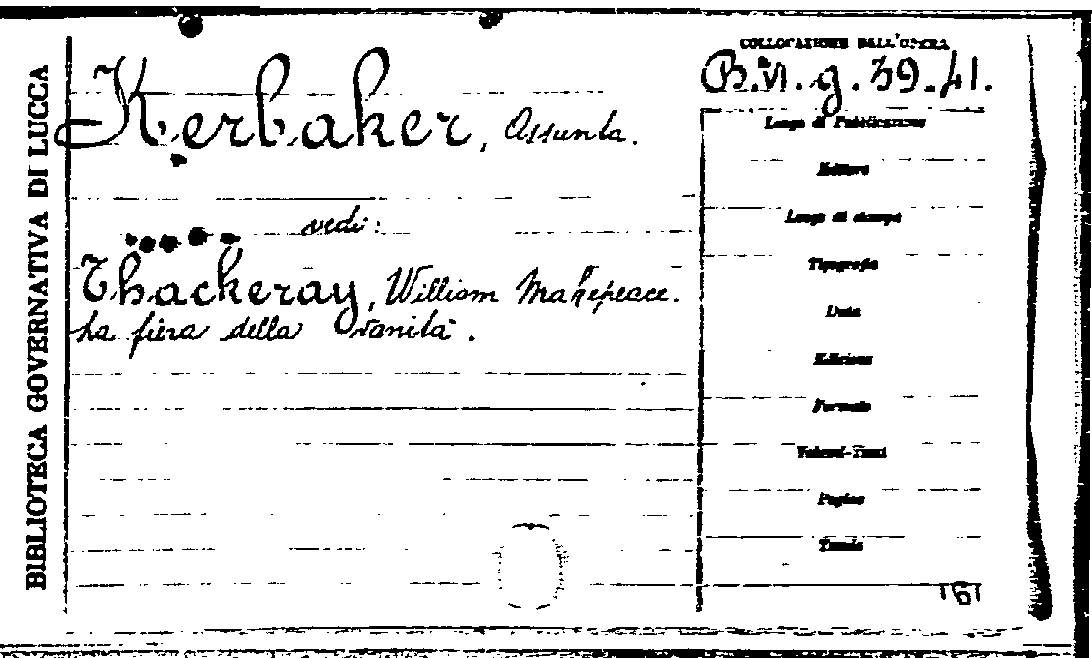 BIBLIOTECA GOVERNATIVA DI LUCCA
COLLOCAZIONE DELL'OPERA
B.VI. g. 39.41.
Kerbaker, Assunta.
vedi:
Thackeray, William Makepeace.
La fiera della vanità.
Luogo di Pubblicazione
Editore
Luogo di stampa
Tipografia
Data
Edizione
Formato
Volumi-Tomi
Pagine
Tavole